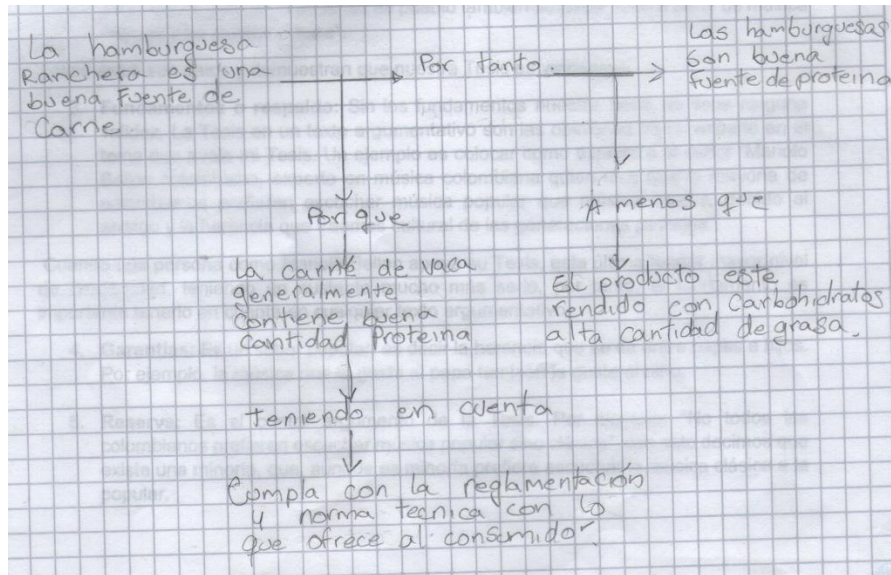 La hamburguesa
Ranchera es una
buena Fuente de
Carne
Por tanto.
Las hamburguesas
son buena
Fuente de proteina
Por que
A menos que
La carne de vaca
generalmente
contiene buena
cantidad Proteina
EL producto este
rendido con carbohidratos
alta cantidad de grasa.
Teniendo en cuenta
Compla con la reglamentación
y norma tecnica con lo
que ofrece al consumidor.